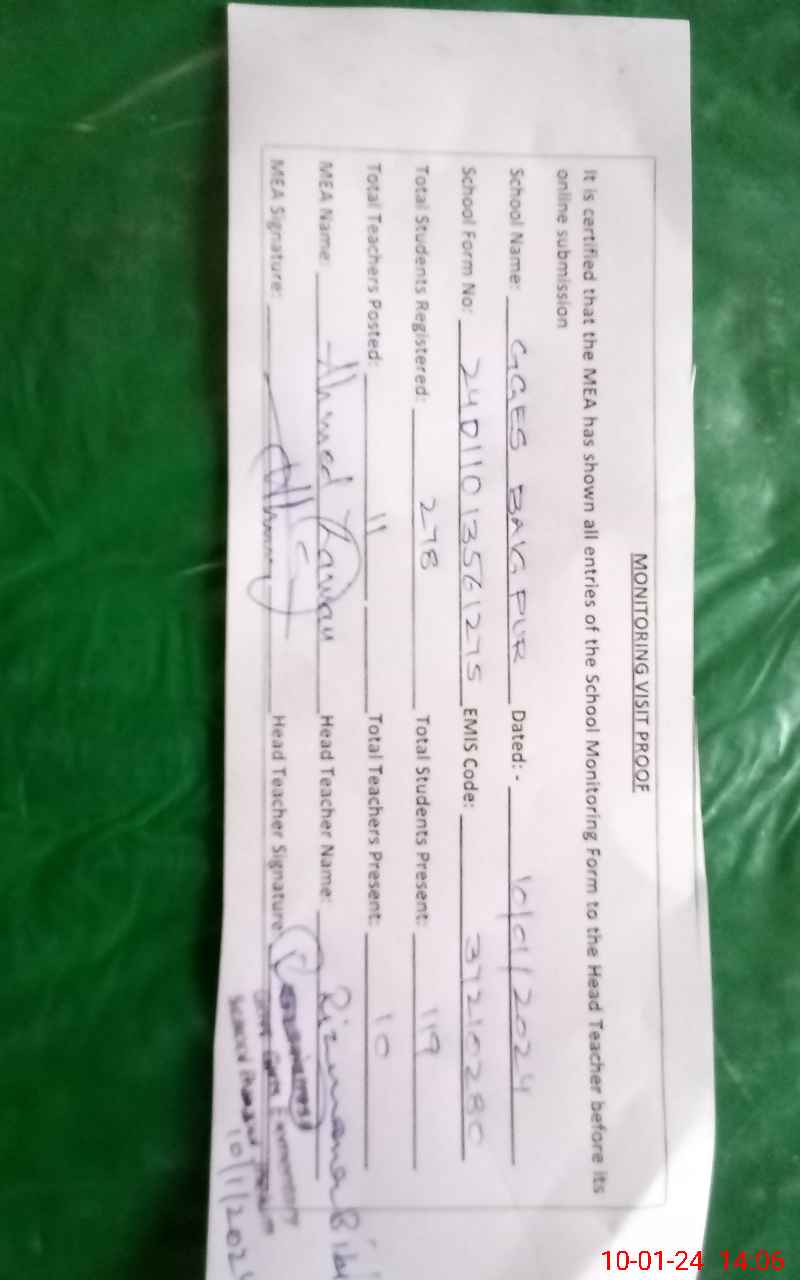 MONITORING VISIT PROOF
It is certified that the MEA has shown all entries of the School Monitoring Form to the Head Teacher before its
online submission
School Name: GGES BAIG PUR Dated: - 10/01/2024
School Form No: 24011013561275 EMIS Code: 37210280
Total Students Registered: 278 Total Students Present: 119
Total Teachers Posted: 11 Total Teachers Present: 10
MEA Name: Ahmed Zawan Head Teacher Name: Rizwana Bibi
MEA Signature: Head Teacher Signature:
Elementary
10/1/2024
10-01-24 14:06